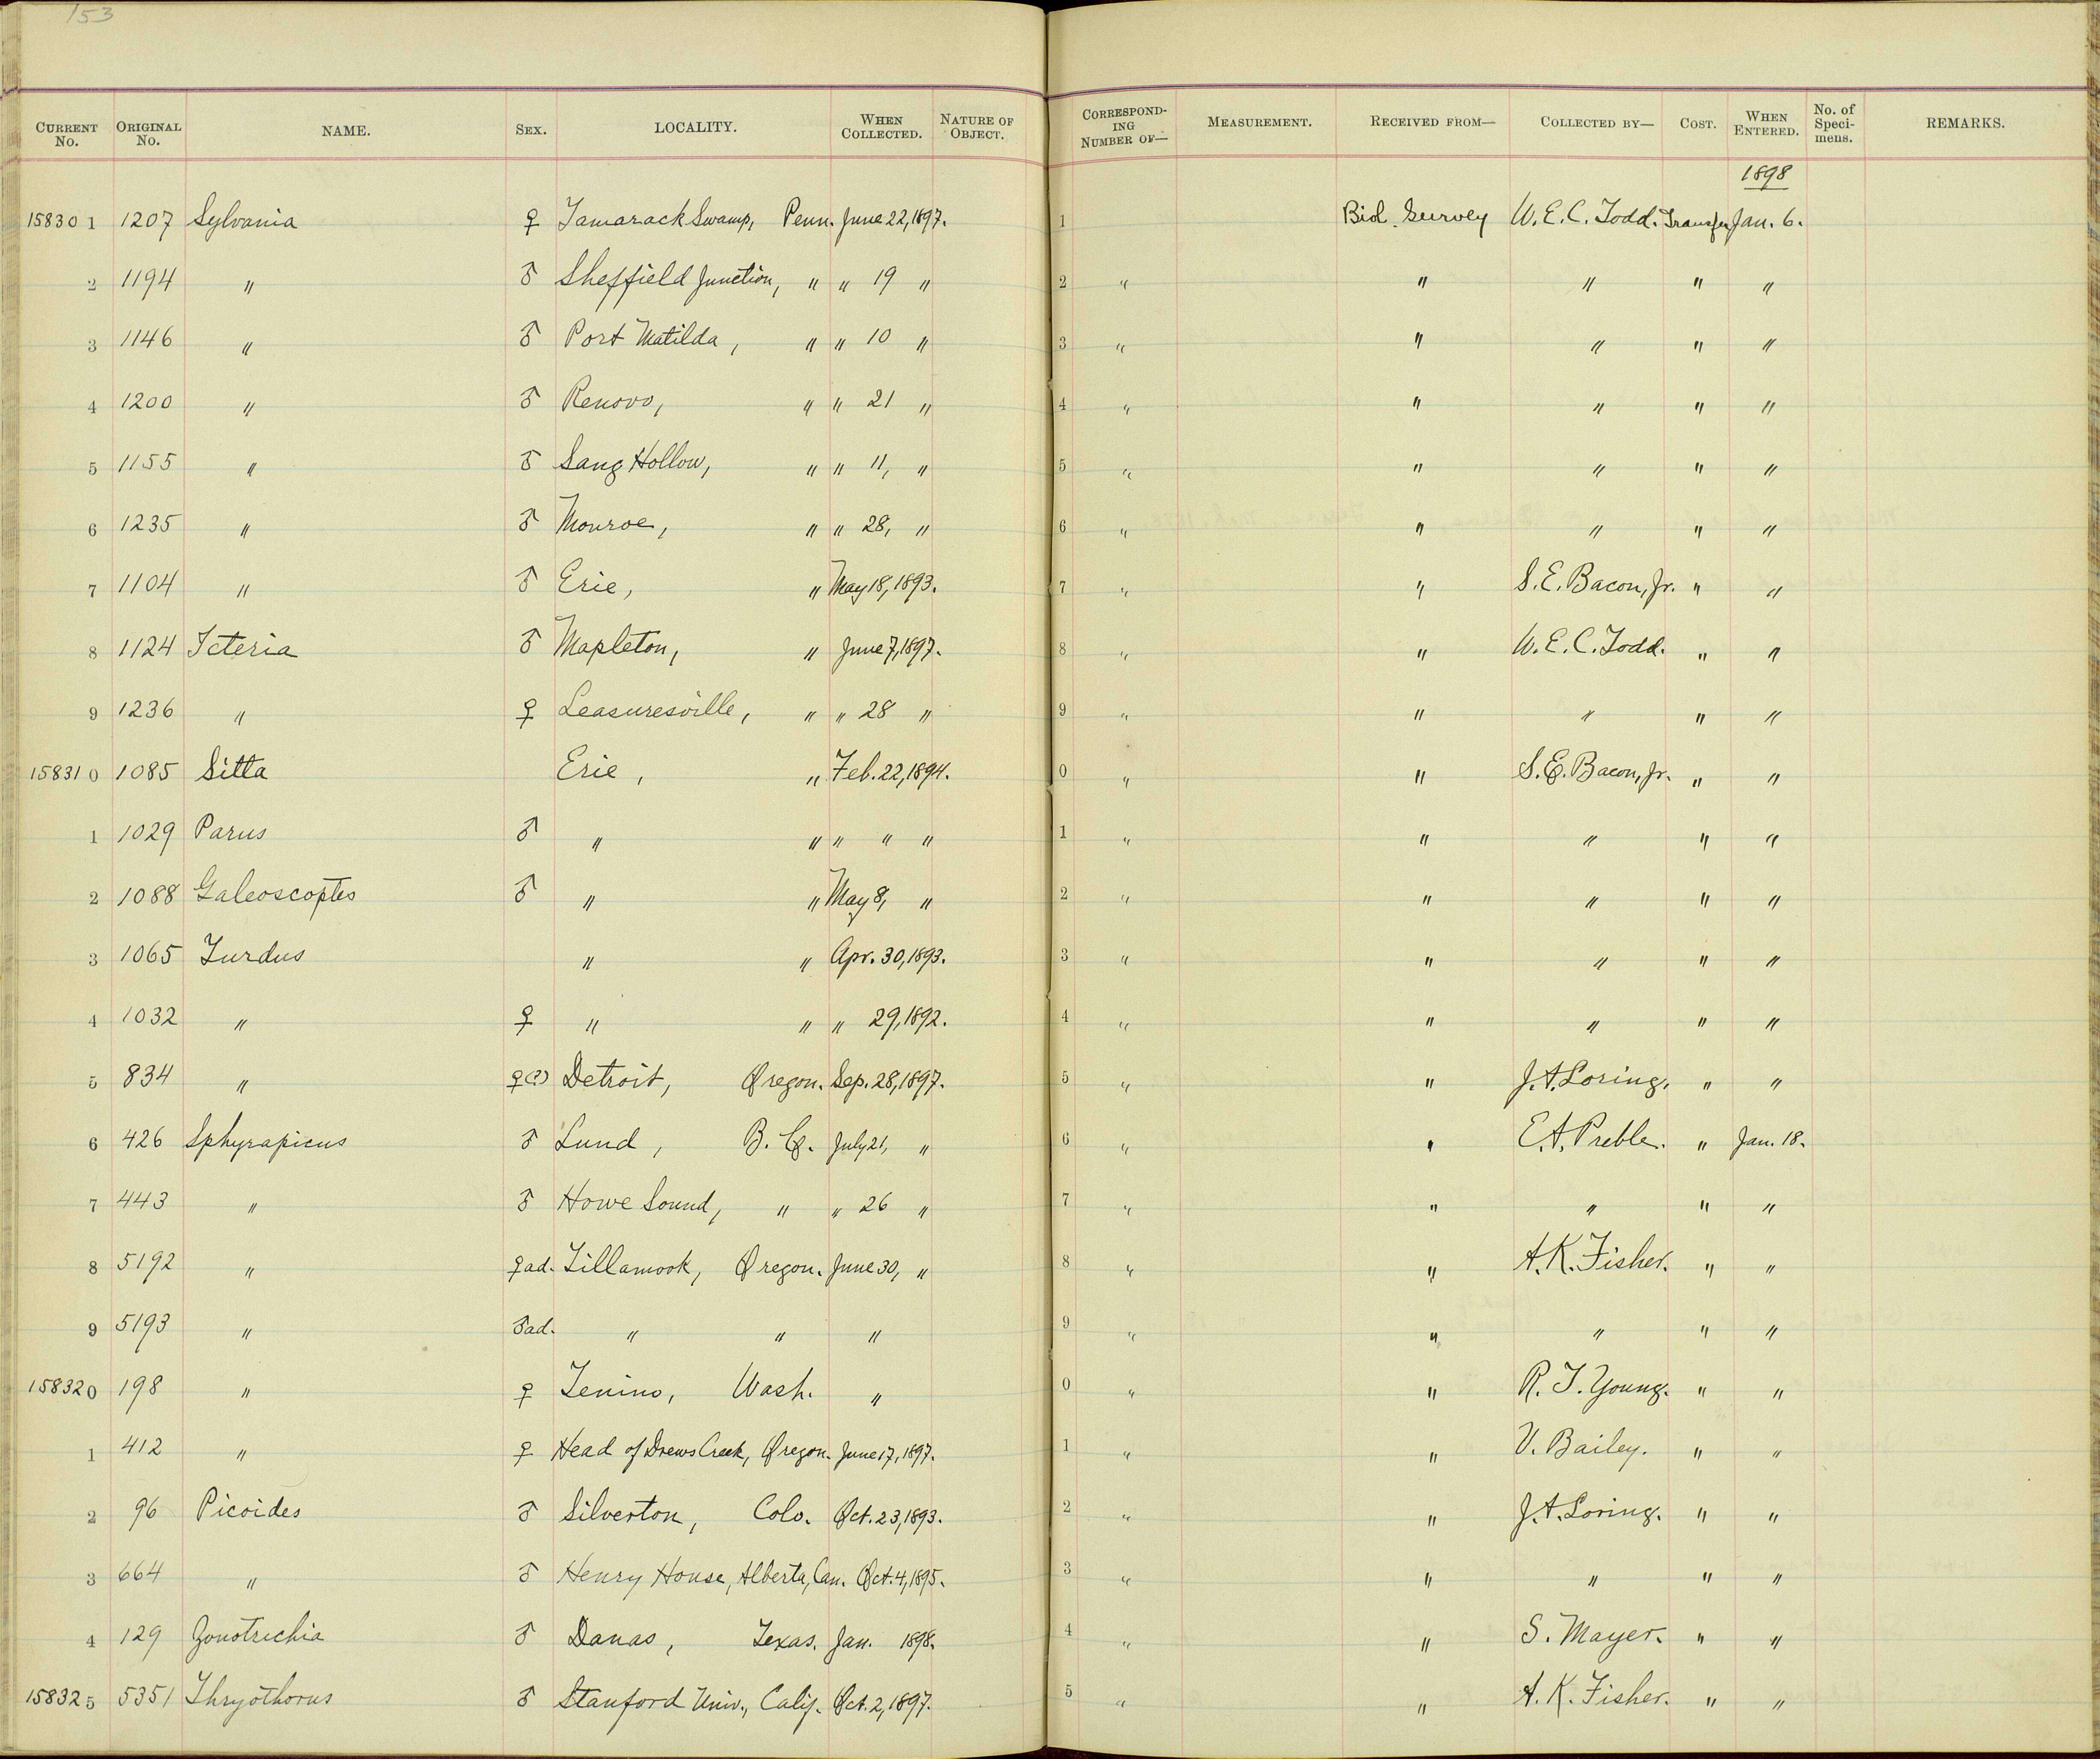 153
CURRENT No. ORIGINAL No. NAME. SEX. LOCALITY. WHEN COLLECTED. NATURE OF OBJECT. CORRESPONDING NUMBER OF— MEASUREMENT. RECEIVED FROM— COLLECTED BY— COST. WHEN ENTERED. No. of Specimens. REMARKS.
1898
158301 1207 Sylvania ♀ Tamarack Swamp, Penn. June 22, 1897. 1 Biol. Survey W. E. C. Todd. Transfer Jan. 6.
2 1194 " ♂ Sheffield Junction, " " 19 " 2 " " " " "
3 1146 " ♂ Port Matilda, " " 10 " 3 " " " " "
4 1200 " ♂ Renovo, " " 21 " 4 " " " " "
5 1155 " ♂ Sang Hollow, " " 11, " 5 " " " " "
6 1235 " ♂ Monroe, " " 28, " 6 " " " " "
7 1104 " ♂ Erie, " May 18, 1893. 7 " " S. E. Bacon, Jr. " "
8 1124 Icteria ♂ Mapleton, " June 7, 1897. 8 " " W. E. C. Todd. " "
9 1236 " ♀ Leasuresville, " " 28 " 9 " " " " "
158310 1085 Sitta Erie, " Feb. 22, 1894. 0 " " S. E. Bacon, Jr. " "
1 1029 Parus ♂ " " " " " 1 " " " " "
2 1088 Galeoscoptes ♂ " " May 8, " 2 " " " " "
3 1065 Turdus " " Apr. 30, 1893. 3 " " " " "
4 1032 " ♀ " " " 29, 1892. 4 " " " " "
5 834 " ♀(?) Detroit, Oregon. Sep. 28, 1897. 5 " " J. A. Loring. " "
6 426 Sphyrapicus ♂ Lund, B. C. July 21, " 6 " " E. A. Preble. " Jan. 18.
7 443 " ♂ Howe Sound, " " 26 " 7 " " " " "
8 5192 " ♀ad. Tillamook, Oregon. June 30, " 8 " " A. K. Fisher. " "
9 5193 " ♂ad. " " " 9 " " " " "
158320 198 " ♀ Tenino, Wash. " 0 " " R. T. Young. " "
1 412 " ♀ Head of Drews Creek, Oregon. June 17, 1897. 1 " " V. Bailey. " "
2 96 Picoides ♂ Silverton, Colo. Oct. 23, 1893. 2 " " J. A. Loring. " "
3 664 " ♂ Henry House, Alberta, Can. Oct. 4, 1895. 3 " " " " "
4 129 Zonotrichia ♂ Danas, Texas. Jan. 1898. 4 " " S. Mayer. " "
158325 5351 Thryothorus ♂ Stanford Univ., Calif. Oct. 2, 1897. 5 " " A. K. Fisher. " "